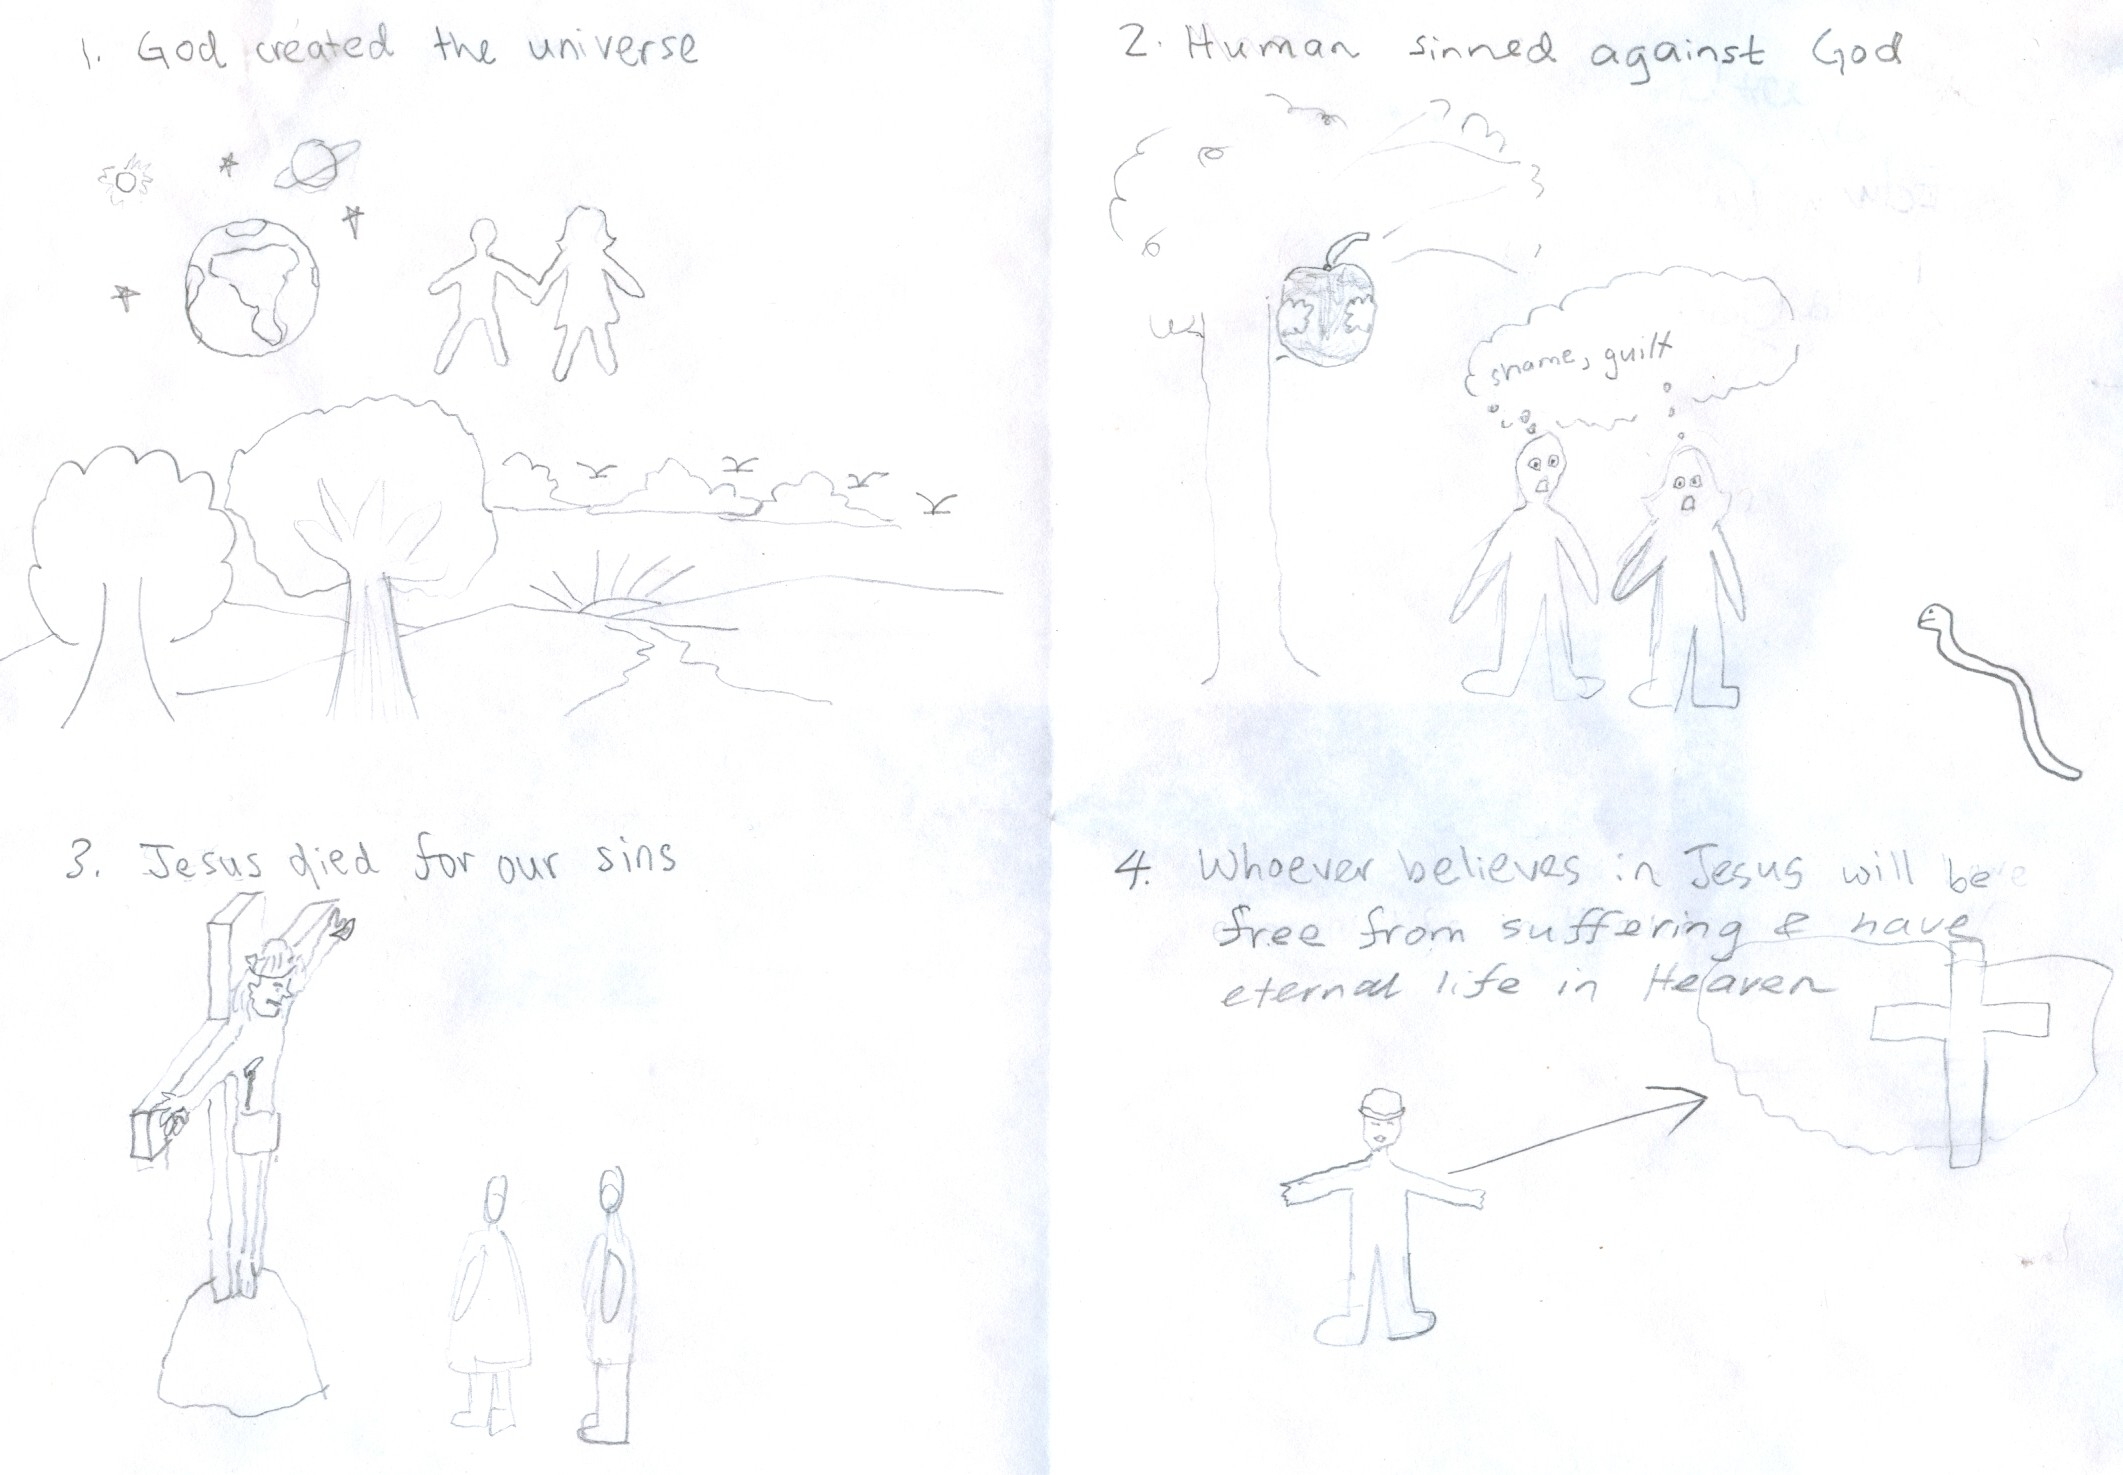 1. God created the universe
2. Human sinned against God
shame, guilt
3. Jesus died for our sins
4. Whoever believes in Jesus will be
free from suffering & have
eternal life in Heaven